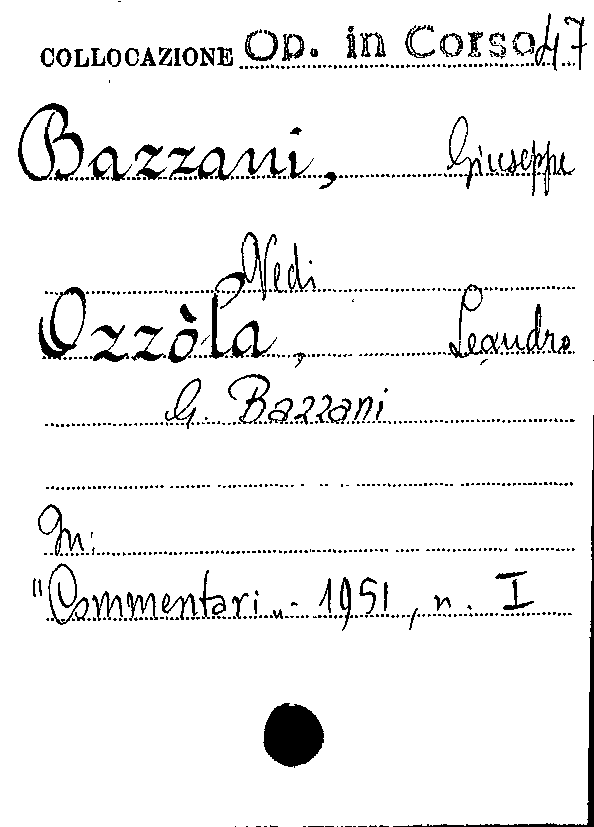 COLLOCAZIONE Op. in Corso 47
Bazzani, Giuseppe
Vedi
Ozzòla, Leandro
G. Bazzani
In:
"Commentari„ - 1951, n. I